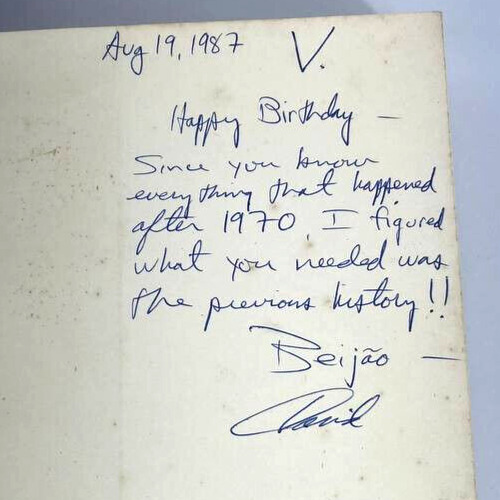 Aug 19, 1987 V.
Happy Birthday —
Since you know
everything that happened
after 1970, I figured
what you needed was
the previous history!!
Beijão —
David